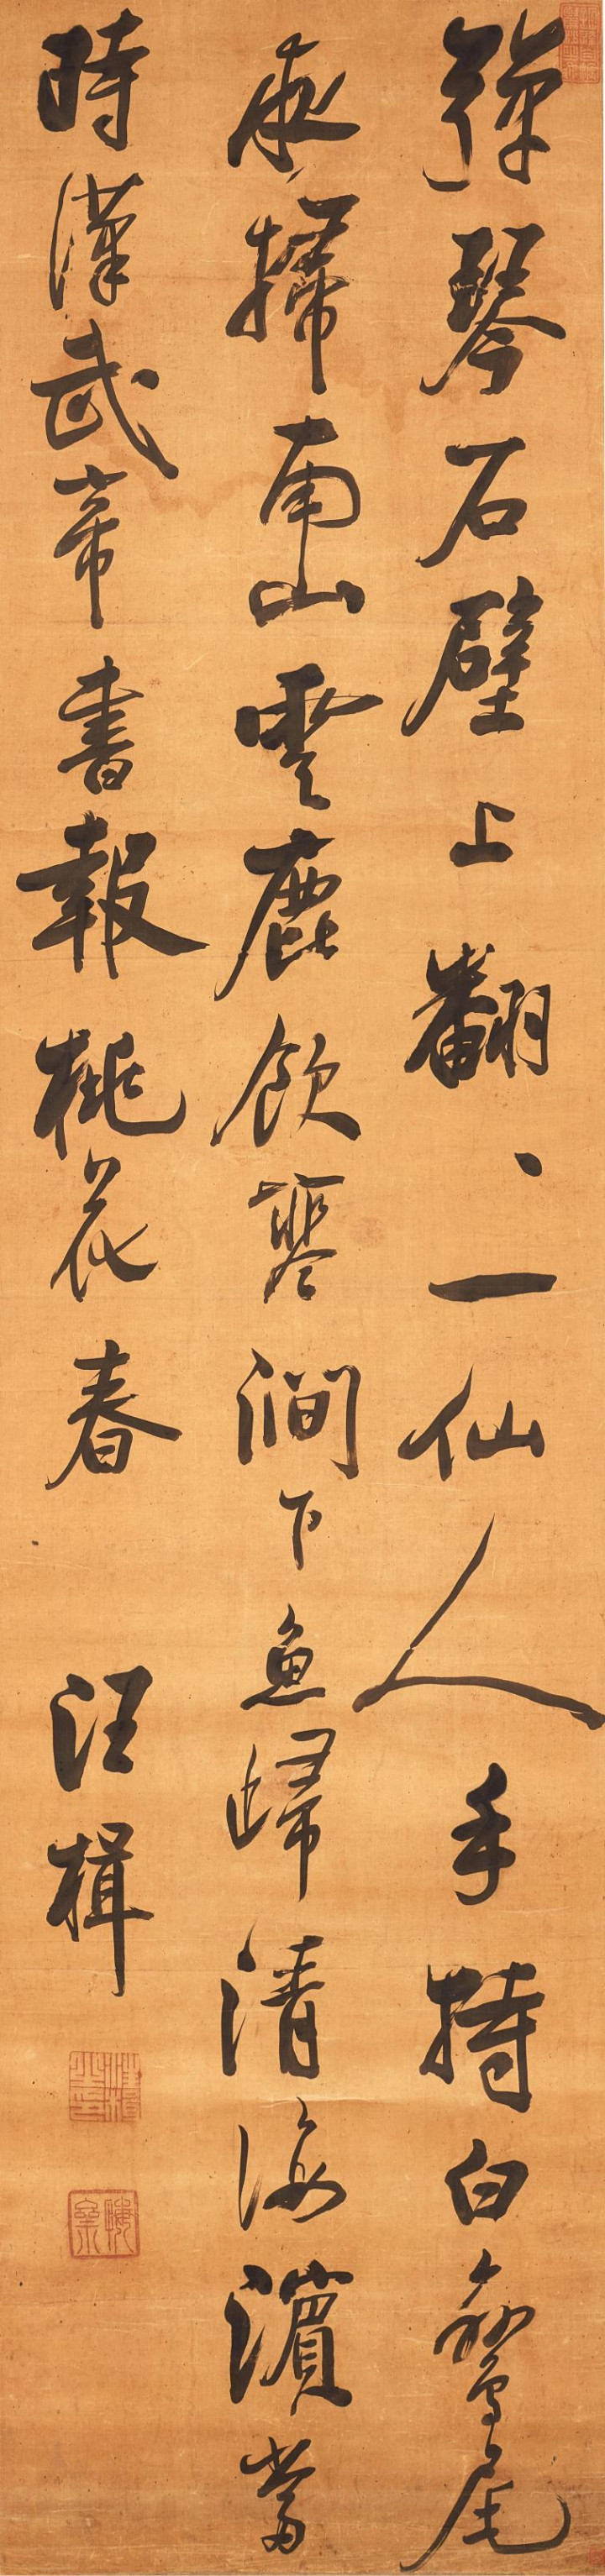 彈琴石壁上翻〻一仙人手持白鸞尾
夜掃南山雲鹿飲寒澗下魚歸清海濱當
時漢武帝書報桃花春
汪楫
汪楫之印